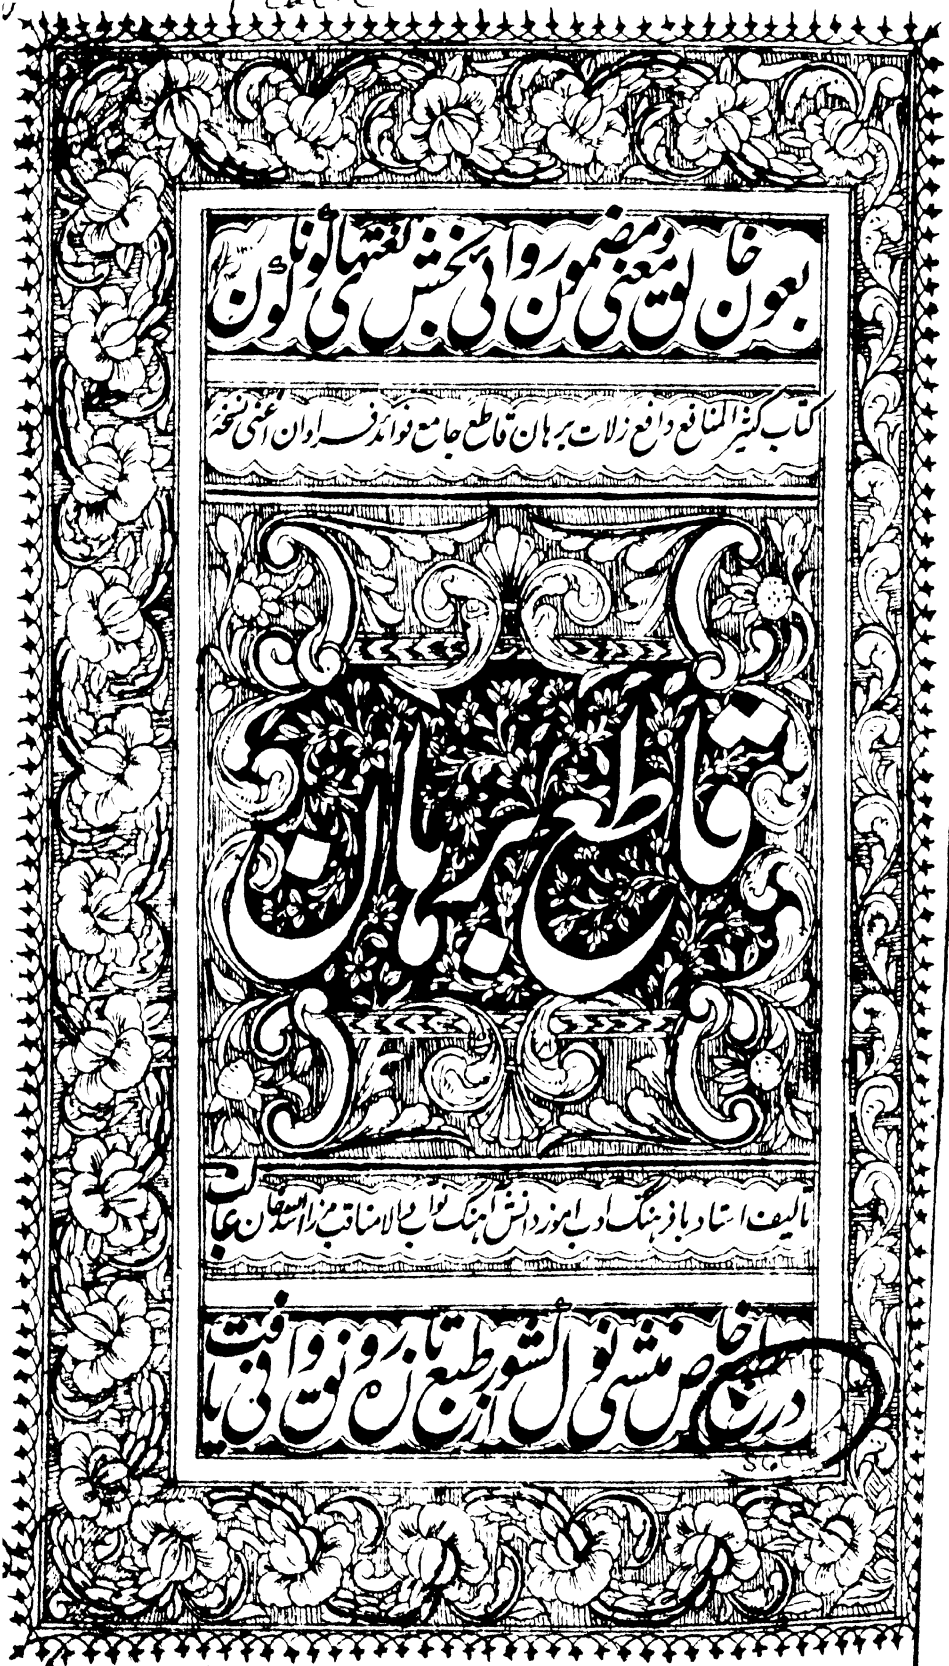 بعون خالق معنی و مضمون روائی بخش لغتهای گوناگون
کتاب کثیر المنافع دافع زلات برهان قاطع جامع فوائد فراوان اعنی نسخهٔ
قاطع برهان
تالیف استاد بافرهنگ ادب آموز دانش آهنگ نواب والا مناقب مرزا اسد الله خان غالب
در مطبع خاص منشی نولکشور از طبع تازه رونق وافی یافت